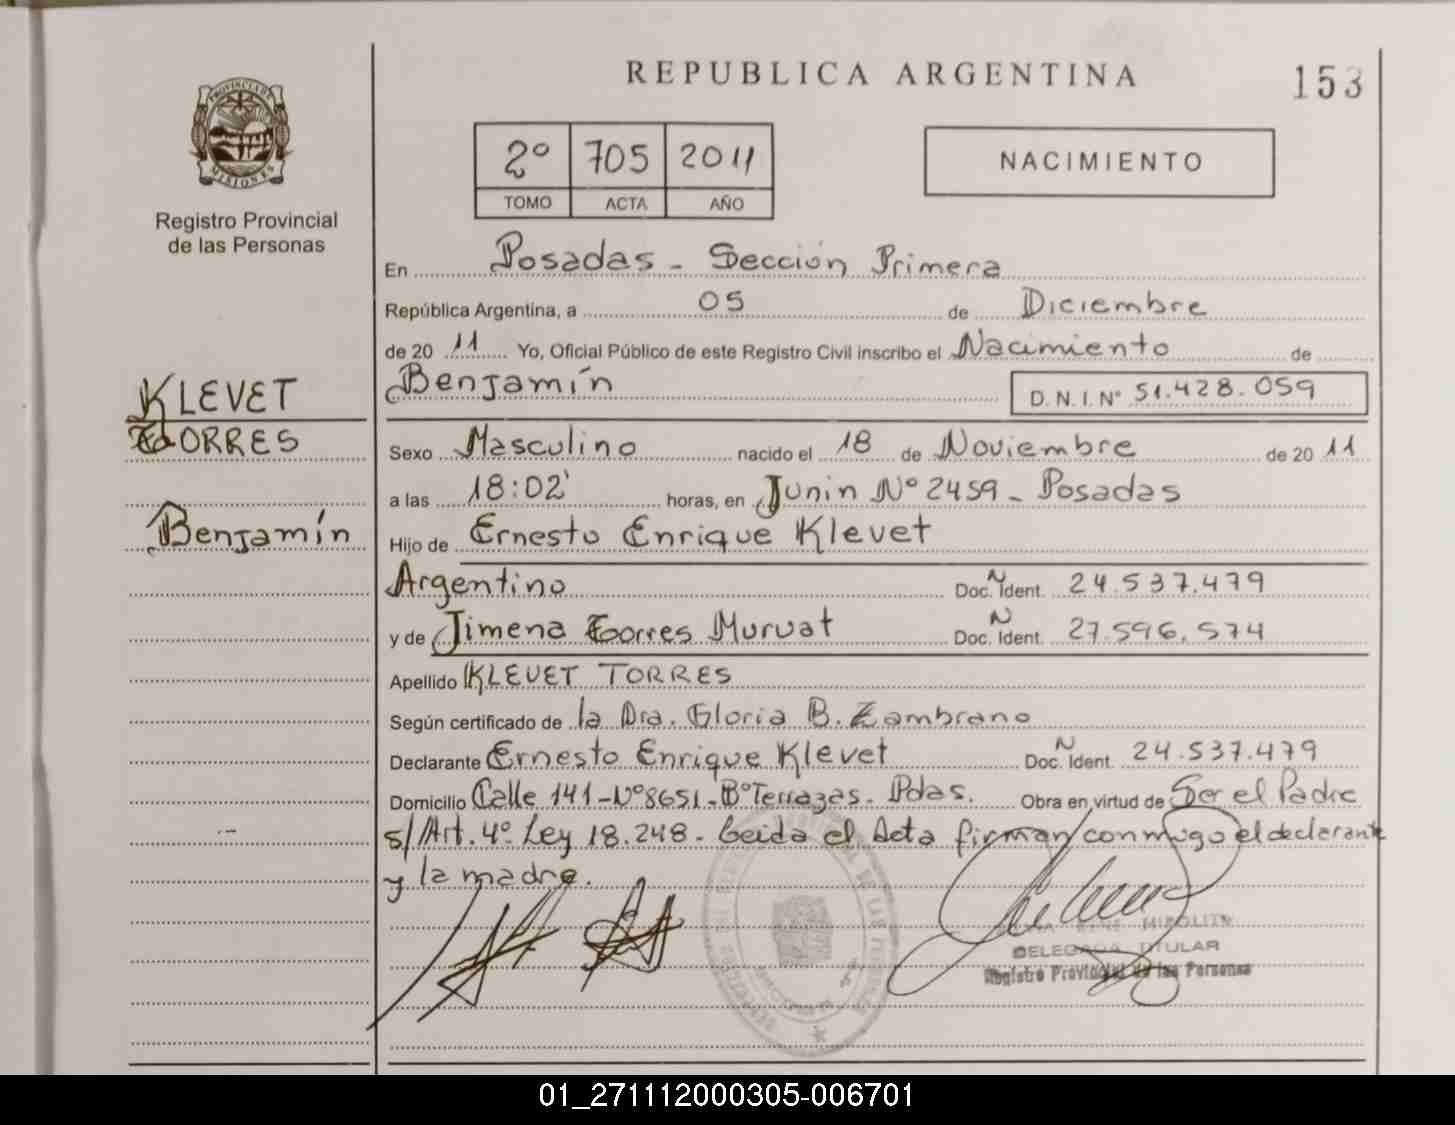 REPUBLICA ARGENTINA
153
PROVINCIA DE
MISIONES
Registro Provincial
de las Personas
2º 705 2011
TOMO ACTA AÑO
NACIMIENTO
En Posadas - Sección Primera
República Argentina, a 05 de Diciembre
de 20 11 Yo, Oficial Público de este Registro Civil inscribo el Nacimiento de
Benjamín D.N.I. Nº 51.428.059
KLEVET
TORRES
Benjamín
Sexo Masculino nacido el 18 de Noviembre de 20 11
a las 18:02' horas, en Junin Nº 2459 - Posadas
Hijo de Ernesto Enrique Klevet
Argentino Doc. Ident. N 24.537.479
y de Jimena Torres Muruat Doc. Ident. N 27.596.574
Apellido KLEVET TORRES
Según certificado de la Dra. Gloria B. Zambrano
Declarante Ernesto Enrique Klevet Doc. Ident. N 24.537.479
Domicilio Calle 141 - Nº 8651 - Bº Terrazas - Pdas. Obra en virtud de Ser el Padre
s/ Art. 4º Ley 18.248 - Leida el Acta firman conmigo el declarante
y la madre.
HIPOLITO
DELEGADA TITULAR
Registro Provincial de las Personas
01_271112000305-006701